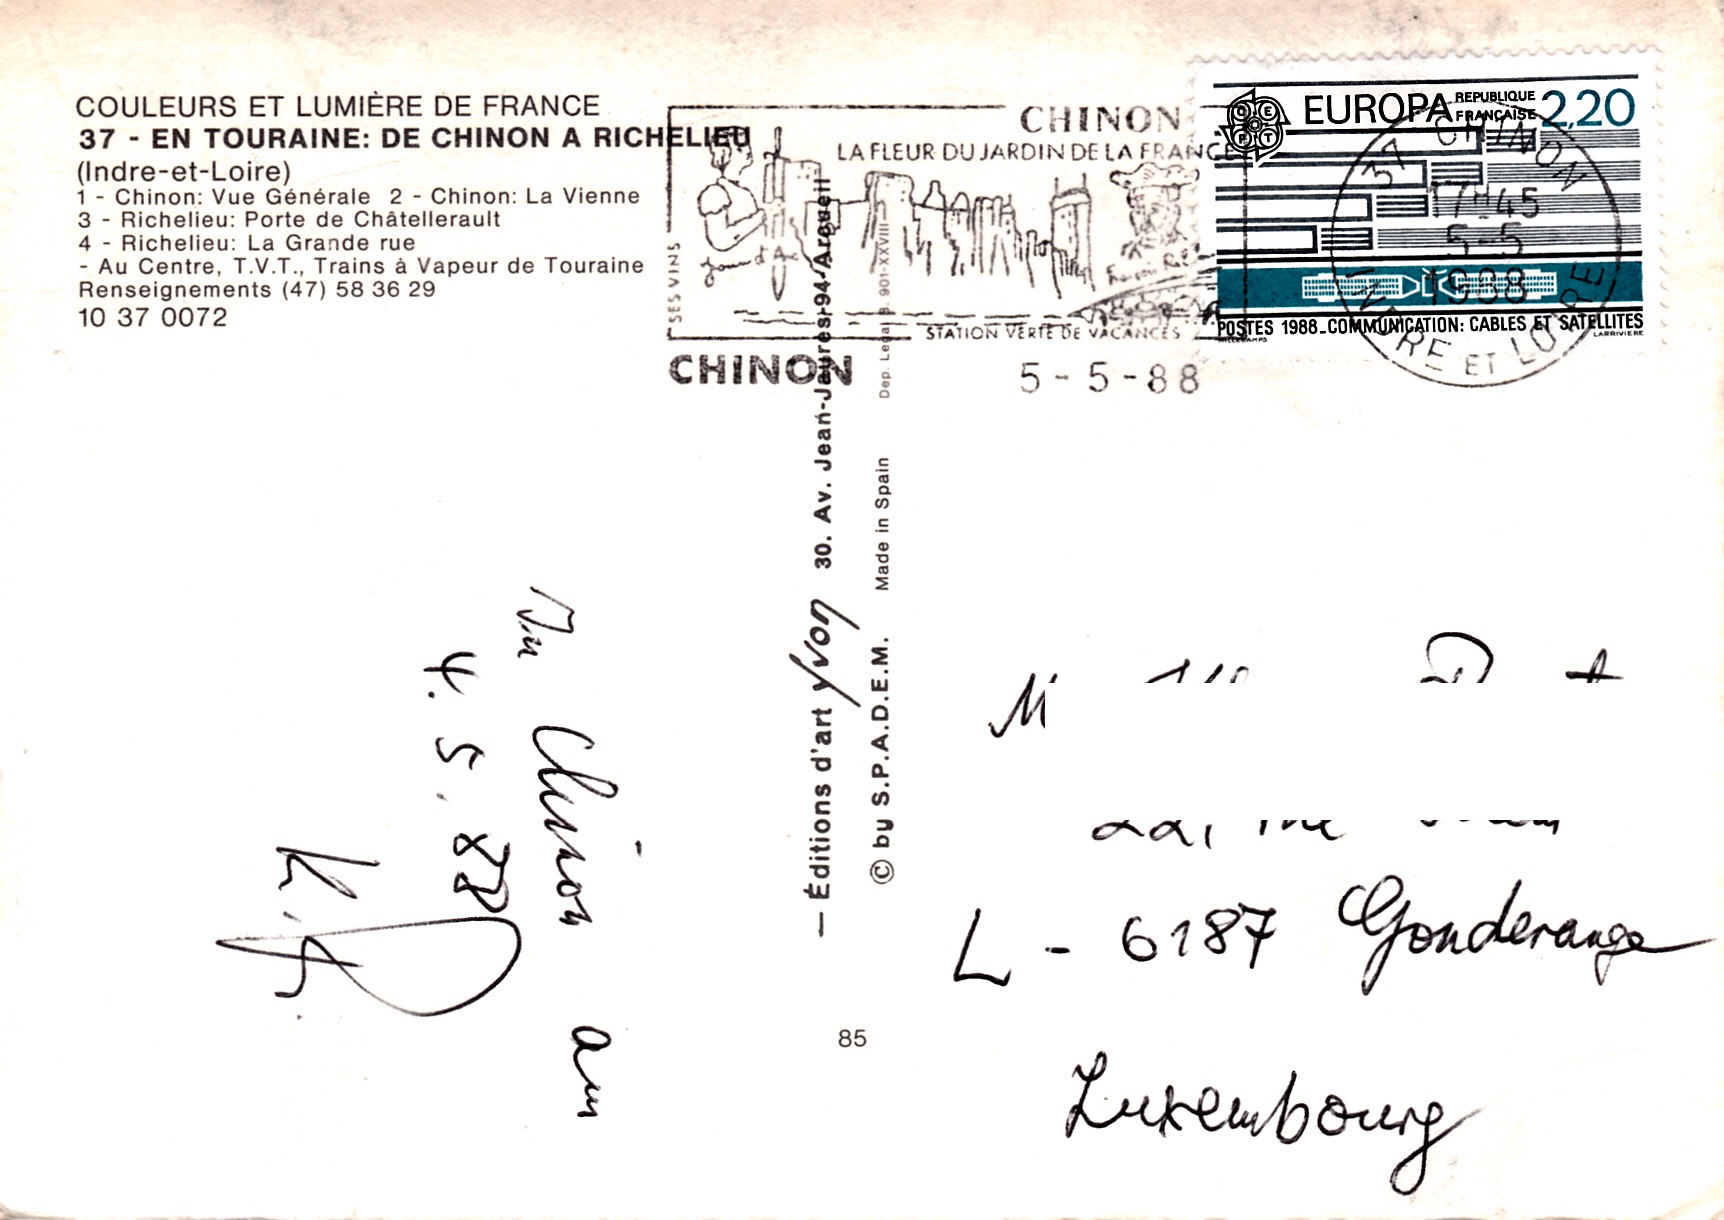 COULEURS ET LUMIÈRE DE FRANCE
37 - EN TOURAINE: DE CHINON A RICHELIEU
(Indre-et-Loire)
1 - Chinon: Vue Générale 2 - Chinon: La Vienne
3 - Richelieu: Porte de Châtellerault
4 - Richelieu: La Grande rue
- Au Centre, T.V.T., Trains à Vapeur de Touraine
Renseignements (47) 58 36 29
10 37 0072
CHINON
LA FLEUR DU JARDIN DE LA FRANCE
SES VINS
STATION VERTE DE VACANCES
CHINON
5-5-88
EUROPA REPUBLIQUE FRANÇAISE 2,20
POSTES 1988_COMMUNICATION: CABLES ET SATELLITES
LARRIVIERE
37 CHINON
17H45
5-5
1988
INDRE ET LOIRE
— Éditions d'art yvon 30. Av. Jean-Jaurès-94-Arcueil
© by S.P.A.D.E.M. Made in Spain Dep. Legal B. 901-XXVIII
In Chinon am
4. 5. 88
85
L - 6187 Gonderange
Luxembourg